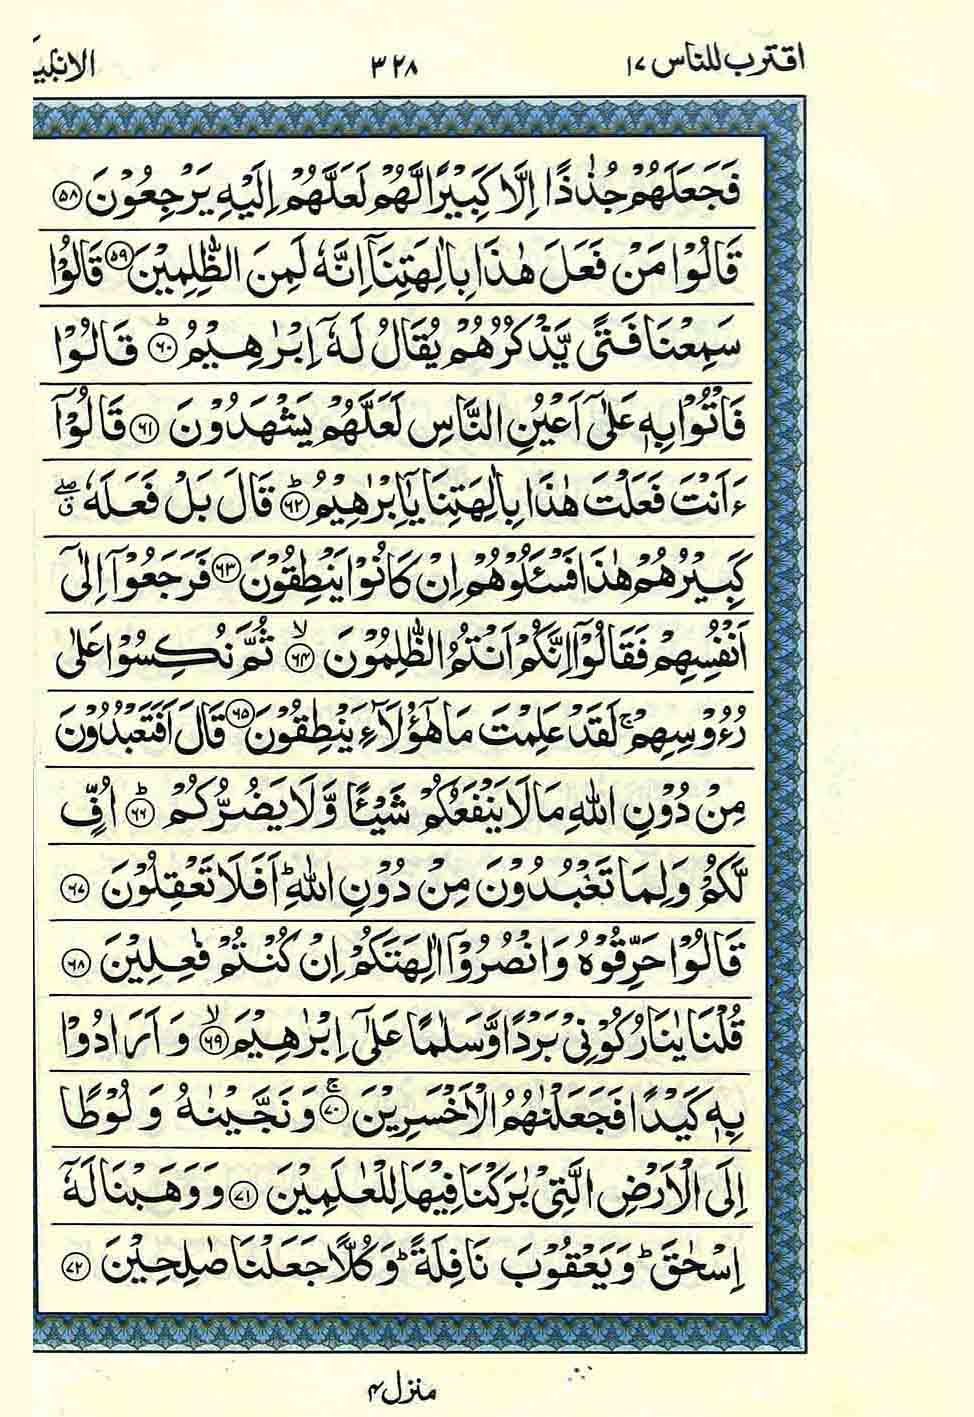 اقترب للناس ۱۷
۳۲۸
الانبیآ
فَجَعَلَهُمْ جُذٰذًا اِلَّا كَبِيْرًا لَّهُمْ لَعَلَّهُمْ اِلَيْهِ يَرْجِعُوْنَ ﴿۵۸﴾
قَالُوْا مَنْ فَعَلَ هٰذَا بِاٰلِهَتِنَاۤ اِنَّهٗ لَمِنَ الظّٰلِمِيْنَ ﴿۵۹﴾ قَالُوْا
سَمِعْنَا فَتًى يَّذْكُرُهُمْ يُقَالُ لَهٗۤ اِبْرٰهِيْمُ ؕ﴿۶۰﴾ قَالُوْا
فَاْتُوْا بِهٖ عَلٰۤى اَعْيُنِ النَّاسِ لَعَلَّهُمْ يَشْهَدُوْنَ ﴿۶۱﴾ قَالُوْۤا
ءَاَنْتَ فَعَلْتَ هٰذَا بِاٰلِهَتِنَا يٰۤاِبْرٰهِيْمُ ؕ﴿۶۲﴾ قَالَ بَلْ فَعَلَهٗ ۖق
كَبِيْرُهُمْ هٰذَا فَسْـَٔلُوْهُمْ اِنْ كَانُوْا يَنْطِقُوْنَ ﴿۶۳﴾ فَرَجَعُوْۤا اِلٰۤى
اَنْفُسِهِمْ فَقَالُوْۤا اِنَّكُمْ اَنْتُمُ الظّٰلِمُوْنَ ۙ﴿۶۴﴾ ثُمَّ نُكِسُوْا عَلٰى
رُءُوْسِهِمْ ۚ لَقَدْ عَلِمْتَ مَا هٰۤؤُلَآءِ يَنْطِقُوْنَ ﴿۶۵﴾ قَالَ اَفَتَعْبُدُوْنَ
مِنْ دُوْنِ اللّٰهِ مَا لَا يَنْفَعُكُمْ شَيْـًٔا وَّلَا يَضُرُّكُمْ ؕ﴿۶۶﴾ اُفٍّ
لَّكُمْ وَلِمَا تَعْبُدُوْنَ مِنْ دُوْنِ اللّٰهِ ؕ اَفَلَا تَعْقِلُوْنَ ﴿۶۷﴾
قَالُوْا حَرِّقُوْهُ وَانْصُرُوْۤا اٰلِهَتَكُمْ اِنْ كُنْتُمْ فٰعِلِيْنَ ﴿۶۸﴾
قُلْنَا يٰنَارُ كُوْنِيْ بَرْدًا وَّسَلٰمًا عَلٰۤى اِبْرٰهِيْمَ ۙ﴿۶۹﴾ وَاَرَادُوْا
بِهٖ كَيْدًا فَجَعَلْنٰهُمُ الْاَخْسَرِيْنَ ۚ﴿۷۰﴾ وَنَجَّيْنٰهُ وَلُوْطًا
اِلَى الْاَرْضِ الَّتِيْ بٰرَكْنَا فِيْهَا لِلْعٰلَمِيْنَ ﴿۷۱﴾ وَوَهَبْنَا لَهٗۤ
اِسْحٰقَ ؕ وَيَعْقُوْبَ نَافِلَةً ؕ وَكُلًّا جَعَلْنَا صٰلِحِيْنَ ﴿۷۲﴾
منزل ۴